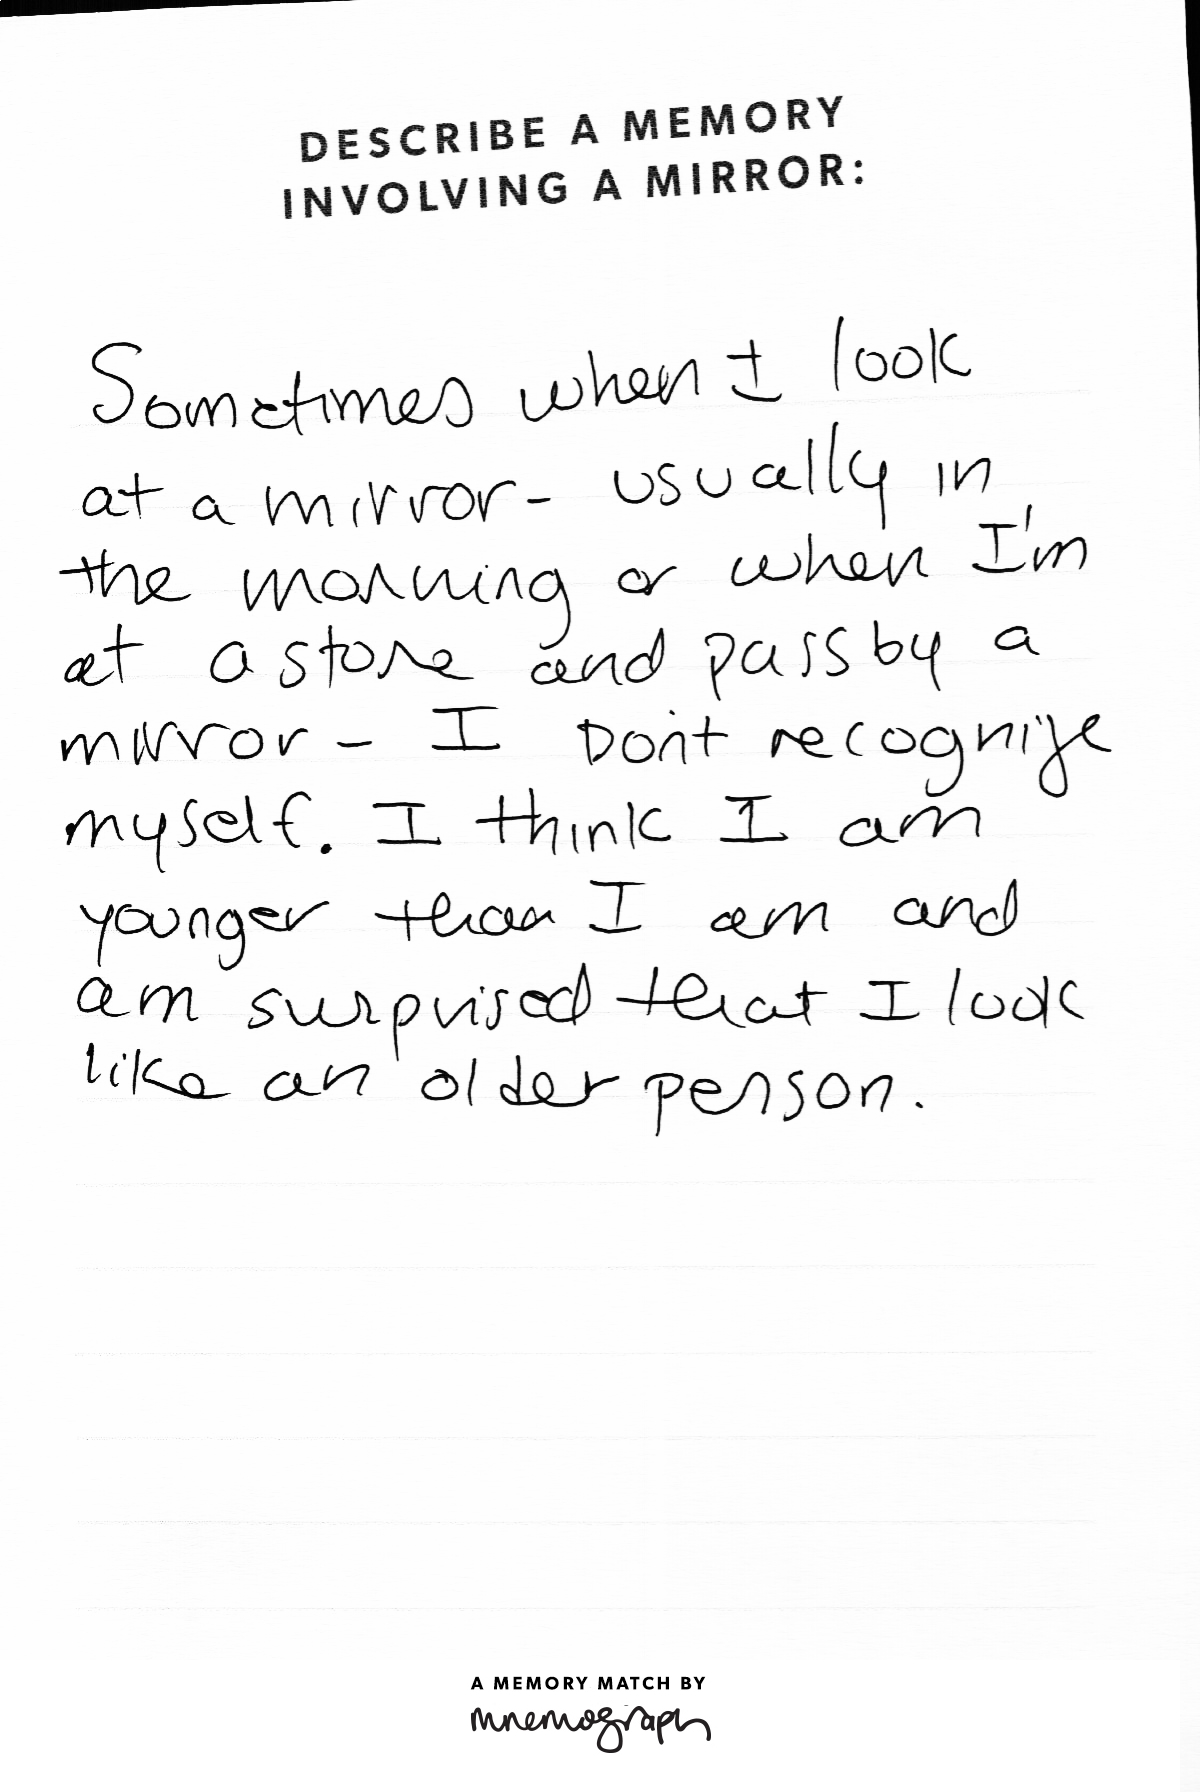 DESCRIBE A MEMORY
INVOLVING A MIRROR:
Sometimes when I look
at a mirror - usually in
the morning or when I'm
at a store and pass by a
mirror - I Don't recognize
myself. I think I am
younger than I am and
am surprised that I look
like an older person.
A MEMORY MATCH BY
mnemograph